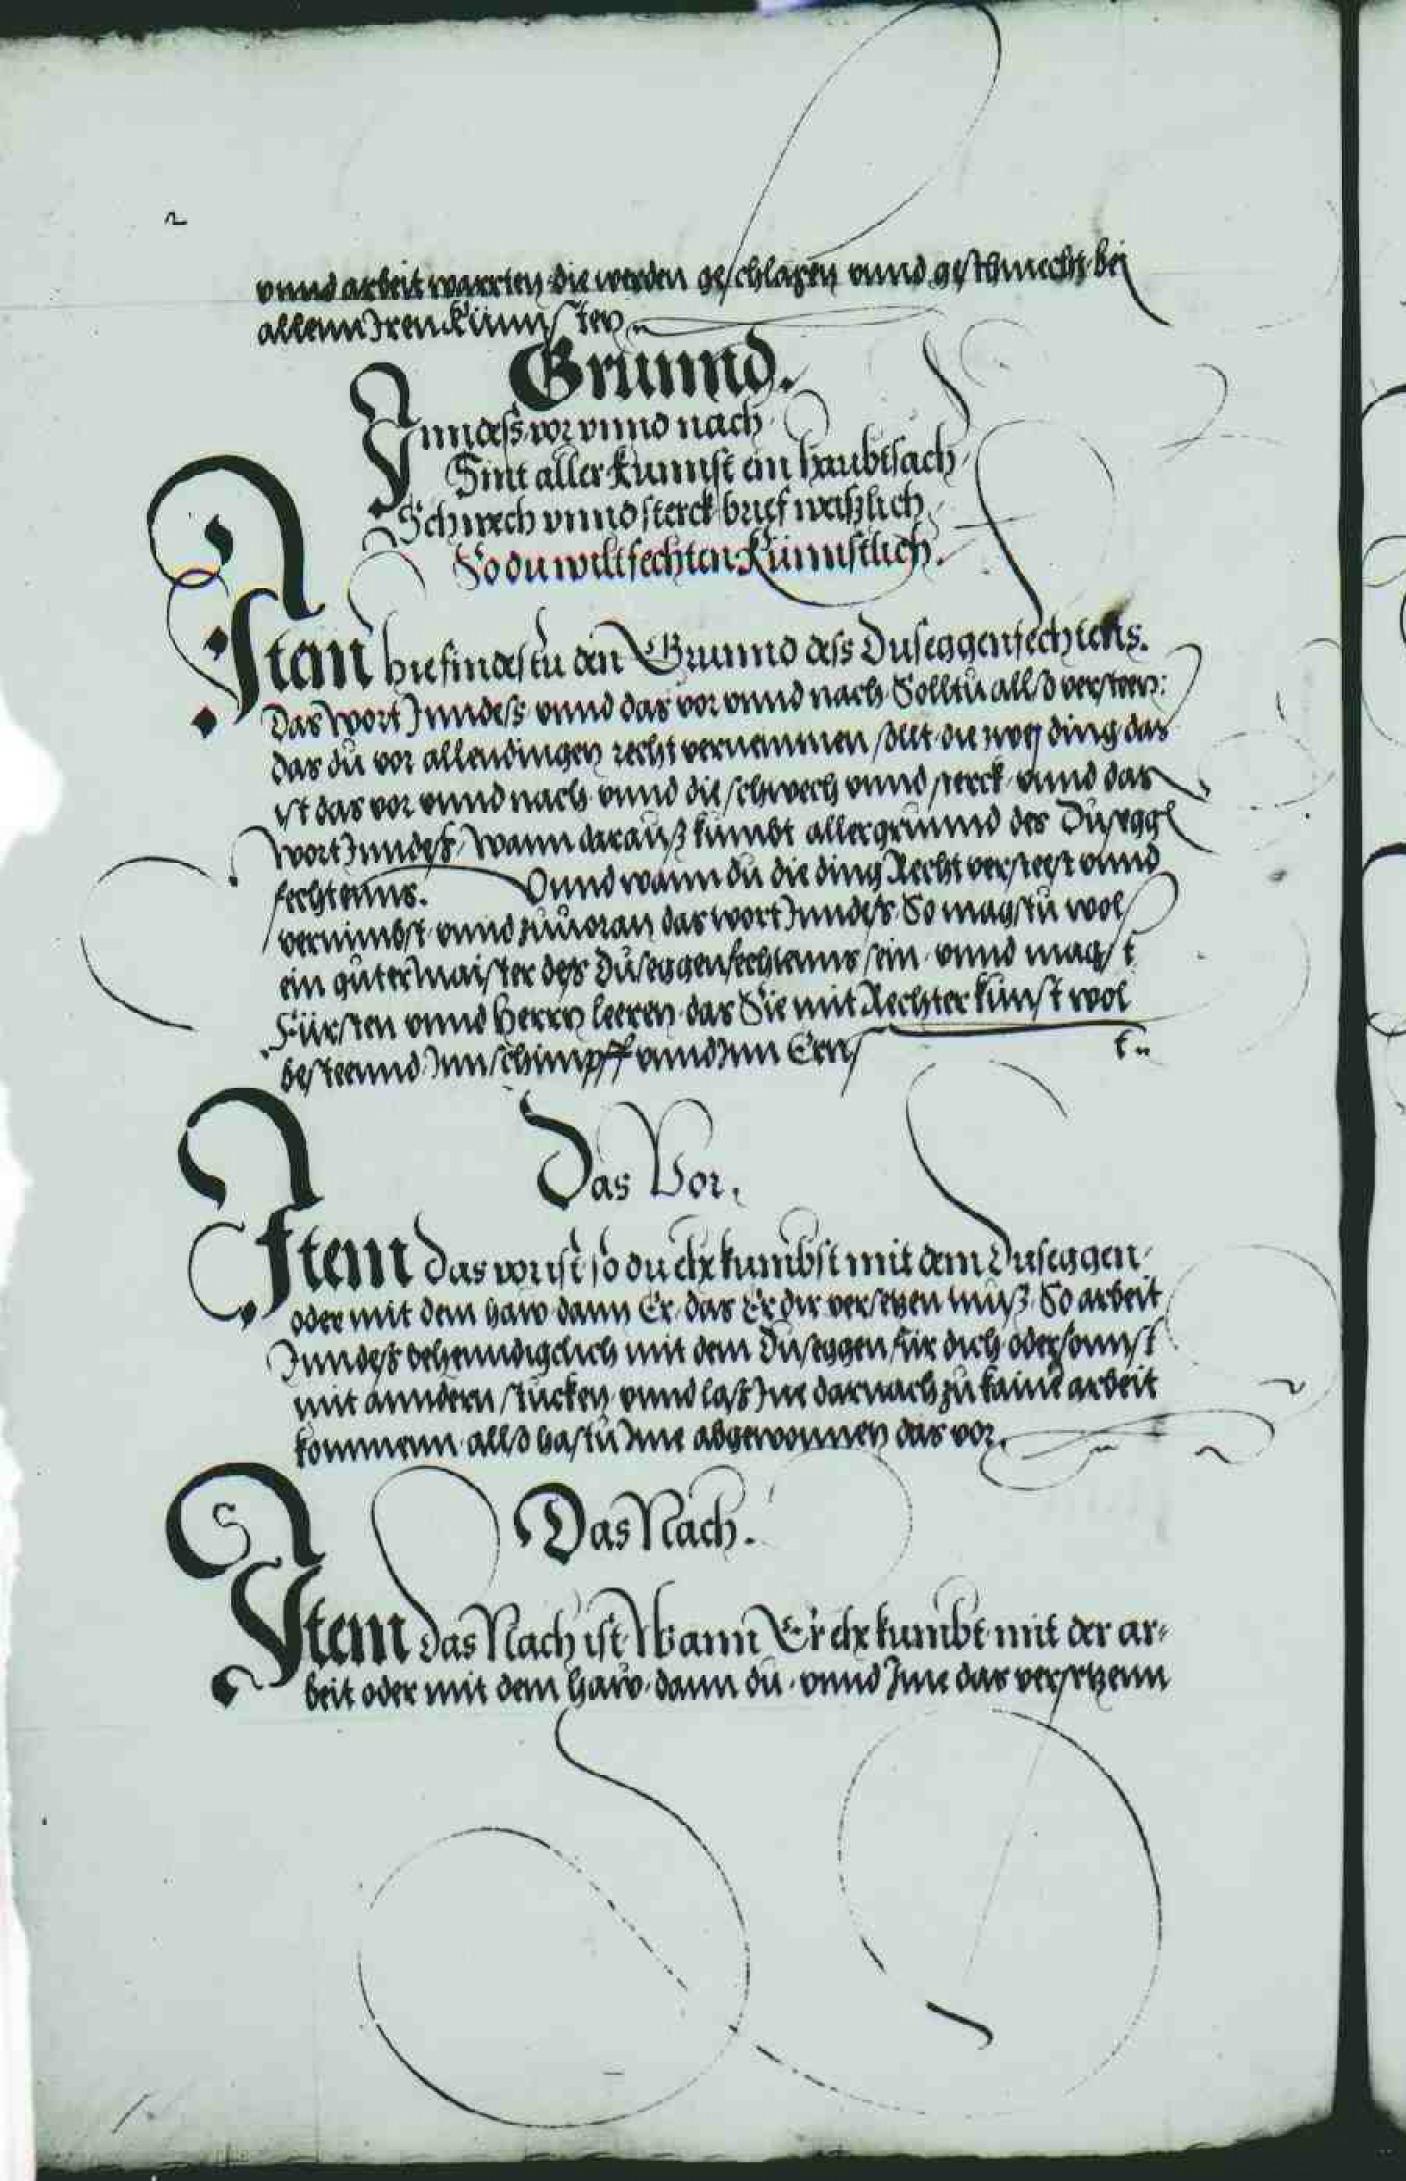 vnnd arbeit warrten die werden geschlagen vnnd geschmecht bei
allenn Iren Künnsten
Grunnd.
Inndess vor vnnd nach
Sint aller kunnst ein haubtsach
Schwech vnnd sterck brief weißlich
So du wilt fechten Künnstlich.
Item hie findestu den Grunnd dess Duseggenfechtens.
Das Wort Inndess vnnd das vor vnnd nach Solltu allso versteen:
das du vor allen dingen recht vernemmen sollt die zwey ding das
ist das vor vnnd nach vnnd die schwech vnnd sterck vnnd das
Wort Inndess, Wann darauß kumbt aller grunnd des Dusegg
fechtenns. Vnnd wann du die ding Recht versteest vnnd
vernimbst vnnd zuuoran das wort Inndess So magstu wol
ein guter Maister dess Duseggenfechtenns sein vnnd magst
Fürsten vnnd Herrn leeren das Sie mit Rechter kunst wol
besteennd Inn schimpff vnnd Inn Ernst
Das Vor.
Item das vor ist so du ehr kumbst mit dem Duseggen
oder mit dem haw dann Er das Er dir versetzen muß So arbeit
Inndess behenndigclich mit dem Duseggen für dich oder sonnst
mit anndern stucken vnnd lass Ine darnach zu kaine arbeit
kommenn allso hastu Ime abgewonnen das vor.
Das Nach.
Item das Nach ist Wann Er ehr kumbt mit der ar-
beit oder mit dem haw dann du vnnd Ime das versetzenn